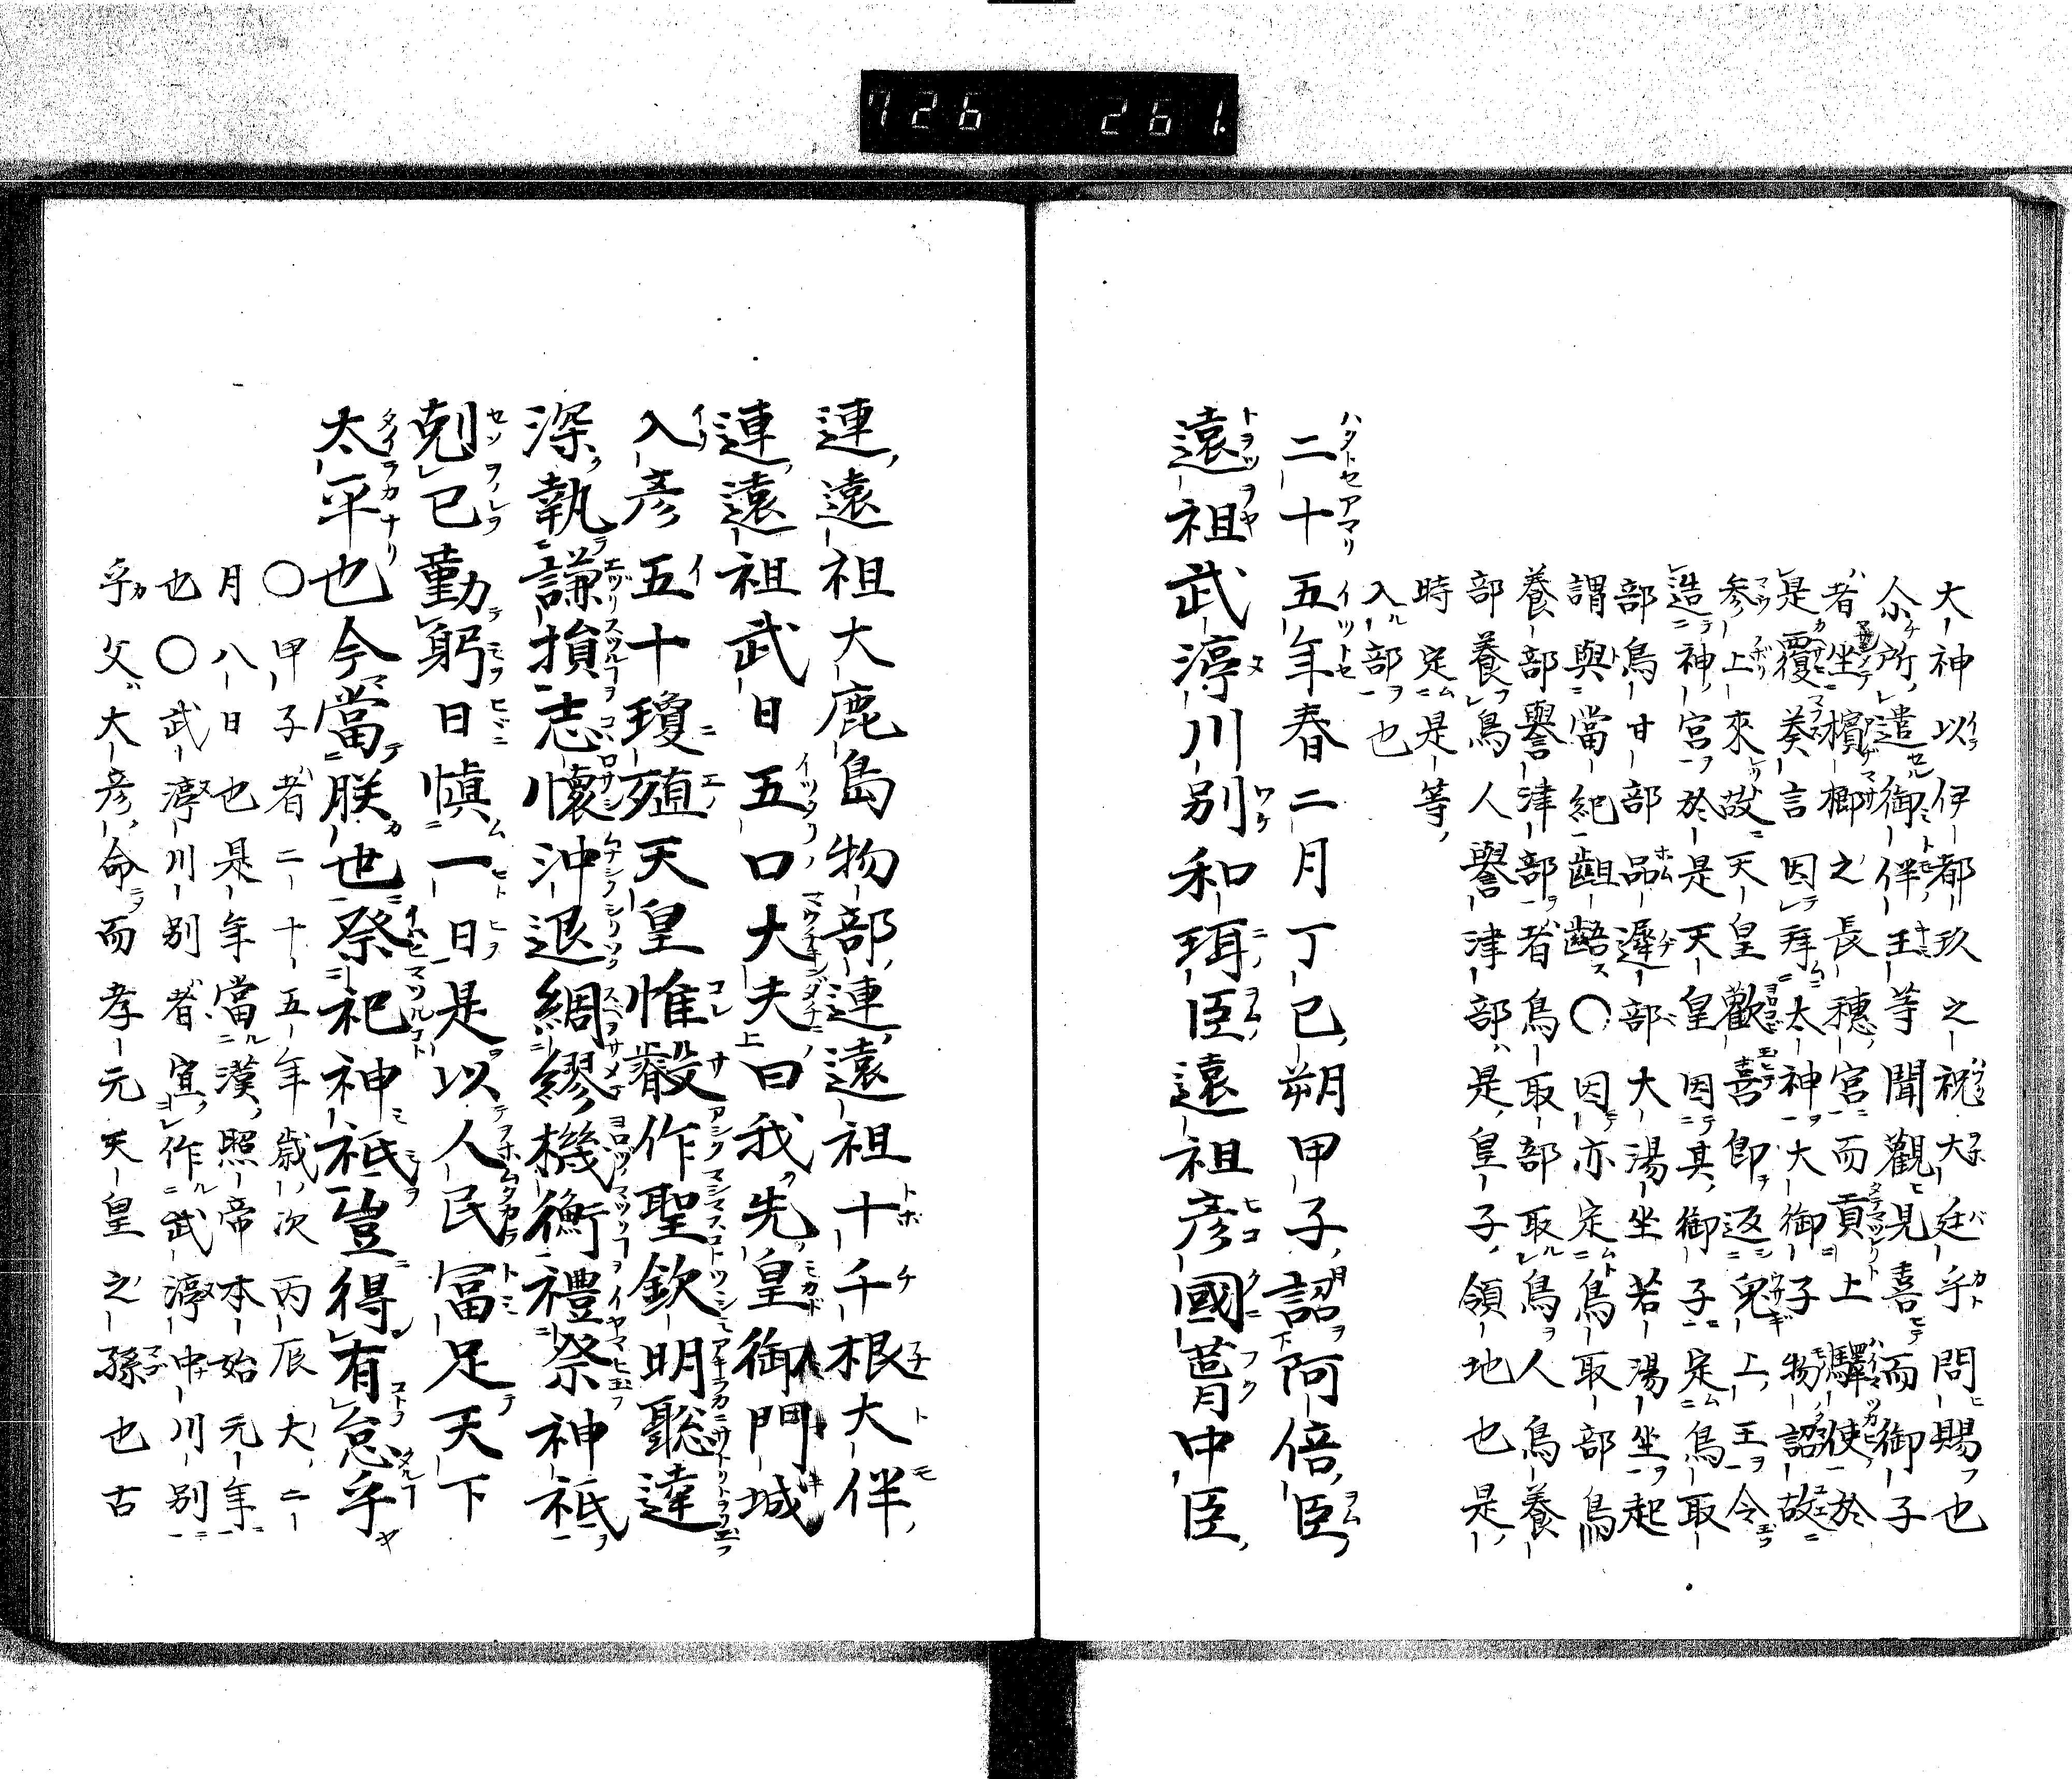 726 261.
大神以伊都玖之祝大廷乎問賜也
尒所遣御伴王等聞觀見喜而御子
者坐檳榔之長穗宮而貢上驛使於
是覆奏言因拜太神大御子物詔故
参上來故天皇歡喜即返兎上王令
造神宮於是天皇因其御子定鳥取
部鳥甘部品遲部大湯坐若湯坐起
謂與當紀齟齬〇因亦定鳥取部鳥
養部譽津部者鳥取部取鳥人鳥養
部養鳥人譽津部是皇子領地也是
時定是等
入部也
二十五年春二月丁巳朔甲子詔阿倍臣
遠祖武渟川別和珥臣遠祖彦國葺中臣
連遠祖大鹿島物部連遠祖十千根大伴
連遠祖武日五口大夫曰我先皇御門城
入彦五十瓊殖天皇惟叡作聖欽明聡達
深執謙損志懷沖退綢繆機衡禮祭神祇
剋已勤躬日愼一日是以人民冨足天下
太平也今當朕世祭祀神祇豈得有怠乎
〇甲子者二十五年歳次丙辰大二
月八日也是年當漢照帝本始元年
也〇武渟川別者宜作武渟中川別
乎父大彦命而孝元天皇之孫也古